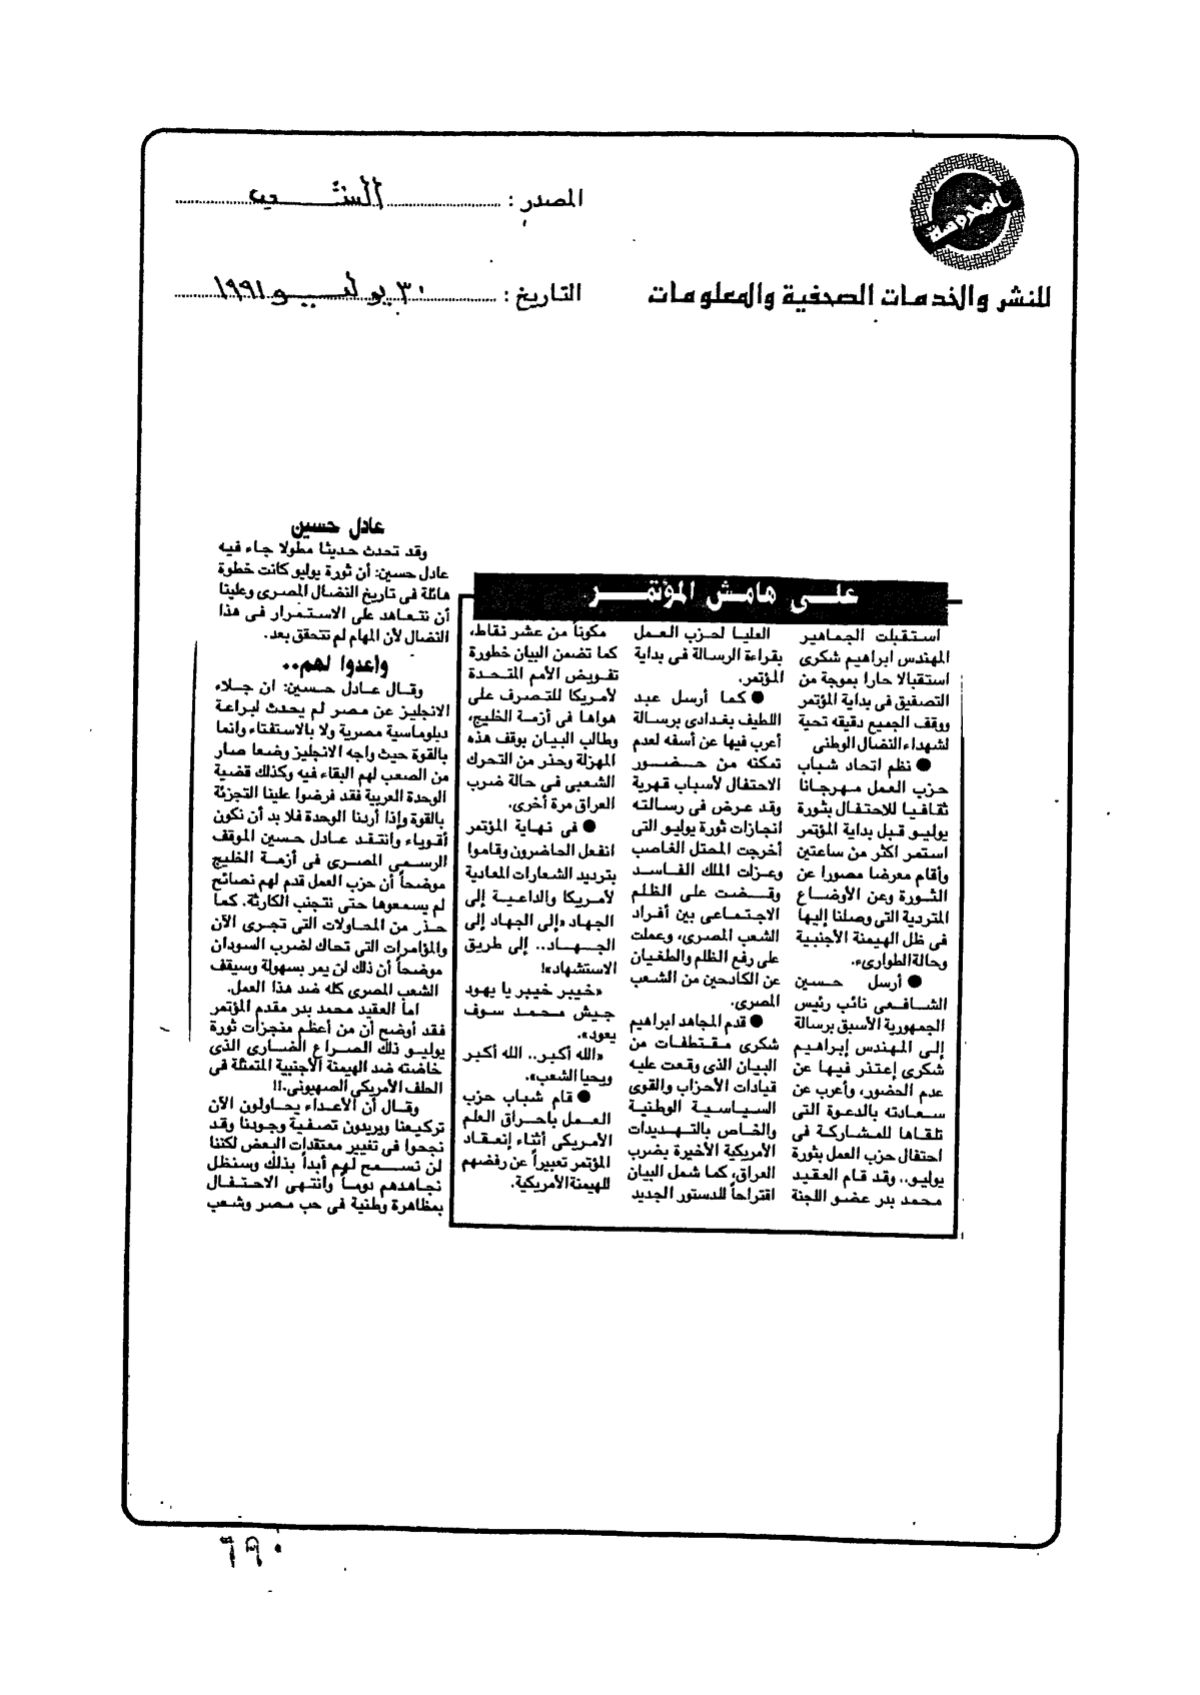 المحروسة
للنشر والخدمات الصحفية والمعلومات
المصدر : الشعب
التاريخ : ٣٠ يوليو ١٩٩١
على هامش المؤتمر
استقبلت الجماهير
المهندس ابراهيم شكرى
استقبالا حارا بموجة من
التصفيق فى بداية المؤتمر
ووقف الجميع دقيقه تحية
لشهداء النضال الوطنى
● نظم اتحاد شباب
حزب العمل مهرجانا
ثقافيا للاحتفال بثورة
يوليو قبل بداية المؤتمر
استمر اكثر من ساعتين
وأقام معرضا مصورا عن
الثورة وعن الأوضاع
المتردية التى وصلنا إليها
فى ظل الهيمنة الأجنبية
وحالة الطوارىء.
● أرسل حسين
الشافعى نائب رئيس
الجمهورية الأسبق برسالة
إلى المهندس إبراهيم
شكرى إعتذر فيها عن
عدم الحضور، وأعرب عن
سعادته بالدعوة التى
تلقاها للمشاركة فى
احتفال حزب العمل بثورة
يوليو.. وقد قام العقيد
محمد بدر عضو اللجنة
العليا لحزب العمل
بقراءة الرسالة فى بداية
المؤتمر.
● كما أرسل عبد
اللطيف بغدادى برسالة
أعرب فيها عن أسفه لعدم
تمكنه من حضور
الاحتفال لأسباب قهرية
وقد عرض فى رسالته
انجازات ثورة يوليو التى
أخرجت المحتل الغاصب
وعزلت الملك الفاسد
وقضت على الظلم
الاجتماعى بين أفراد
الشعب المصرى، وعملت
على رفع الظلم والطغيان
عن الكادحين من الشعب
المصرى.
● قدم المجاهد ابراهيم
شكرى مقتطفات من
البيان الذى وقعت عليه
قيادات الأحزاب والقوى
السياسية الوطنية
والخاص بالتهديدات
الأمريكية الأخيرة بضرب
العراق، كما شمل البيان
اقتراحاً للدستور الجديد
مكوناً من عشر نقاط،
كما تضمن البيان خطورة
تفويض الأمم المتحدة
لأمريكا للتصرف على
هواها فى أزمة الخليج،
وطالب البيان بوقف هذه
المهزلة وحذر من التحرك
الشعبى فى حالة ضرب
العراق مرة أخرى.
● فى نهاية المؤتمر
انفعل الحاضرون وقاموا
بترديد الشعارات المعادية
لأمريكا والداعية إلى
الجهاد «إلى الجهاد إلى
الجهاد.. إلى طريق
الاستشهاد»!
«خيبر خيبر يا يهود
جيش محمد سوف
يعود».
«الله أكبر.. الله أكبر
ويحيا الشعب».
● قام شباب حزب
العمل باحراق العلم
الأمريكى أثناء إنعقاد
المؤتمر تعبيراً عن رفضهم
للهيمنة الأمريكية.
عادل حسين
وقد تحدث حديثا مطولا جاء فيه
عادل حسين: أن ثورة يوليو كانت خطوة
هائلة فى تاريخ النضال المصرى وعلينا
أن نتعاهد على الاستمرار فى هذا
النضال لأن المهام لم تتحقق بعد.
واعدوا لهم..
وقال عادل حسين: ان جلاء
الانجليز عن مصر لم يحدث لبراعة
دبلوماسية مصرية ولا بالاستفتاء وانما
بالقوة حيث واجه الانجليز وضعا صار
من الصعب لهم البقاء فيه وكذلك قضية
الوحدة العربية فقد فرضوا علينا التجزئة
بالقوة وإذا أردنا الوحدة فلا بد أن نكون
أقوياء وانتقد عادل حسين الموقف
الرسمى المصرى فى أزمة الخليج
موضحاً أن حزب العمل قدم لهم نصائح
لم يسمعوها حتى نتجنب الكارثة. كما
حذر من المحاولات التى تجرى الآن
والمؤامرات التى تحاك لضرب السودان
موضحاً أن ذلك لن يمر بسهولة وسيقف
الشعب المصرى كله ضد هذا العمل.
اما العقيد محمد بدر مقدم المؤتمر
فقد أوضح أن من أعظم منجزات ثورة
يوليو ذلك الصراع الضارى الذى
خاضته ضد الهيمنة الأجنبية المتمثلة فى
الحلف الأمريكى الصهيونى.!!
وقال أن الأعداء يحاولون الآن
تركيعنا ويريدون تصفية وجودنا وقد
نجحوا فى تغيير معتقدات البعض لكننا
لن نسمح لهم أبداً بذلك وسنظل
نجاهدهم دوماً وانتهى الاحتفال
بمظاهرة وطنية فى حب مصر وشعب
٦٩٠